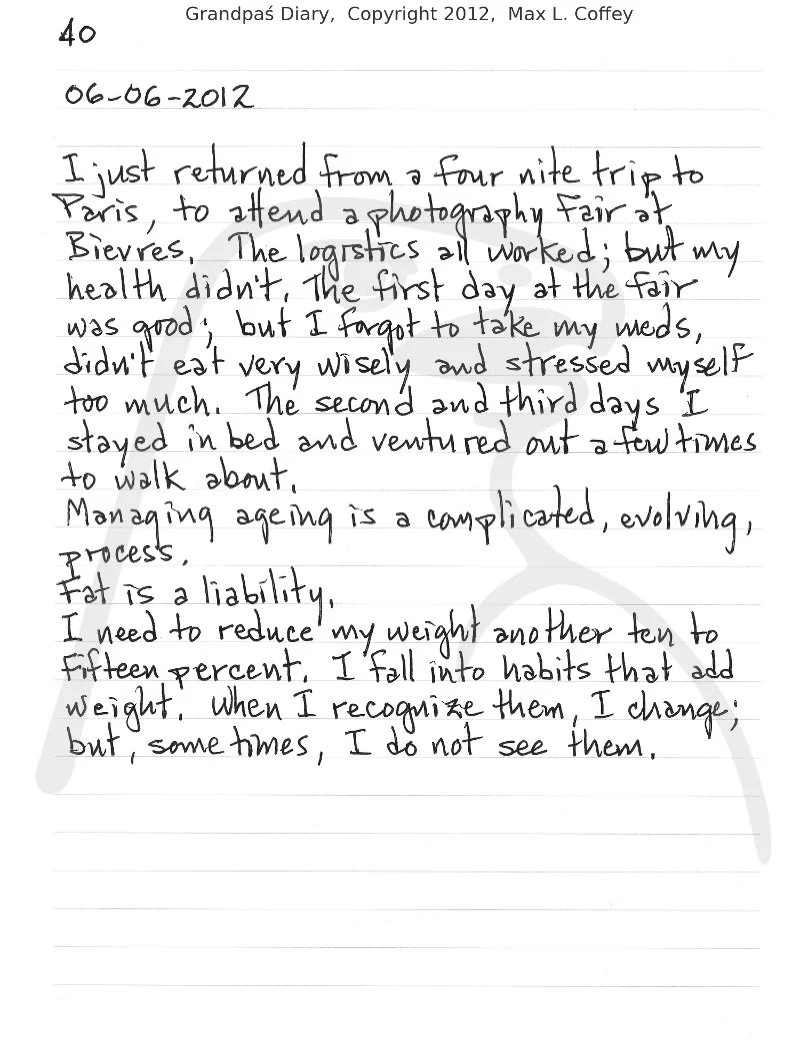 Grandpaś Diary, Copyright 2012, Max L. Coffey
40
06-06-2012
I just returned from a four nite trip to
Paris, to attend a photography Fair at
Bievres. The logistics all worked; but my
health didn't. The first day at the fair
was good; but I forgot to take my meds,
didn't eat very wisely and stressed myself
too much. The second and third days I
stayed in bed and ventured out a few times
to walk about.
Managing ageing is a complicated, evolving,
process.
Fat is a liability.
I need to reduce my weight another ten to
Fifteen percent. I fall into habits that add
weight. When I recognize them, I change;
but, sometimes, I do not see them.